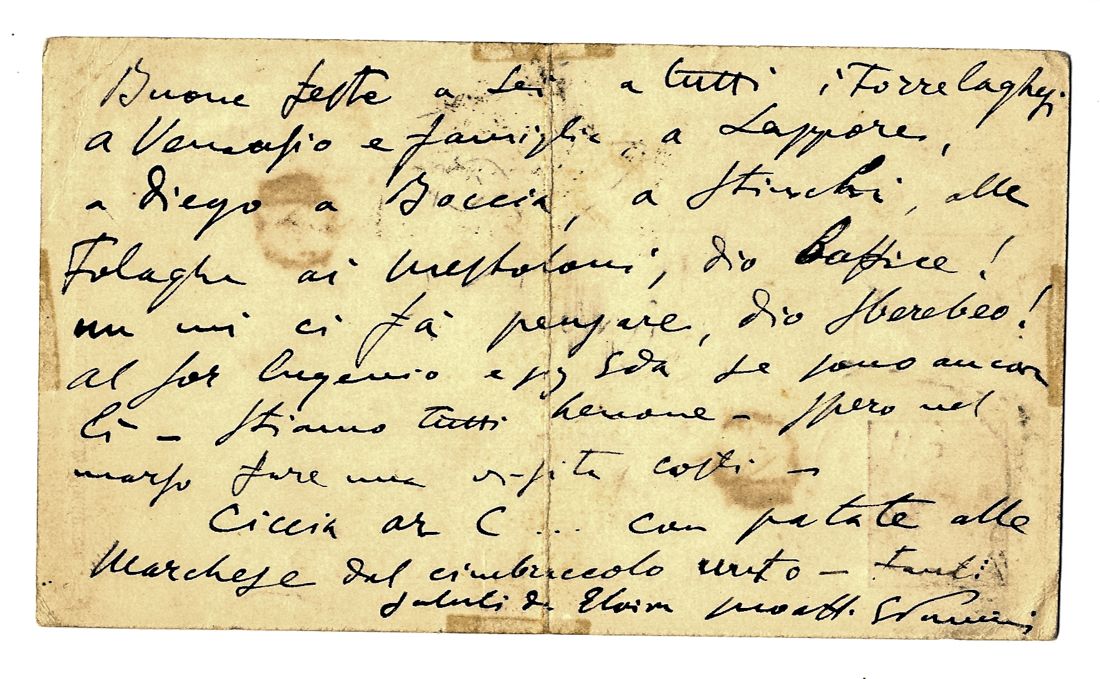 Buone feste a Lei a tutti i Torrelaghesi
a Venanzio e famiglia, a Lappore,
a Diego a Boccia, a Stinchi, alle
Folaghe ai mestoloni, dio baffice!
un mi ci fà pensare, dio sberebeo!
al sor Eugenio e Eda se sono ancora
lì - Stiamo tutti benone - spero nel
marzo fare una visita costì -
Ciccia ar C .. con patate alle
Marchese dal cimbraccolo unto - Tanti
saluti da Elvira suo aff. GPuccini